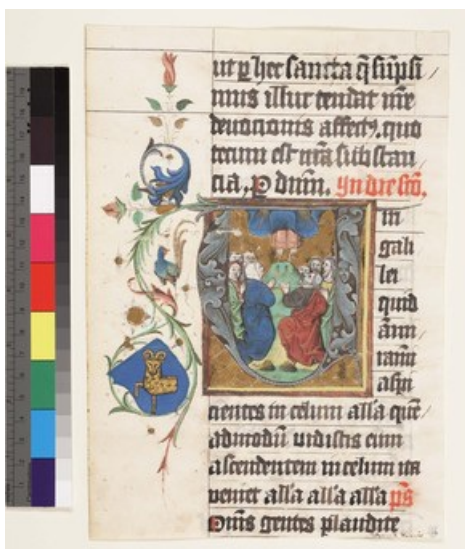 ut p hec sancta q̄ sūpsi
mus illuc tendat n̄re
deuocionis affectꝰ. quo
tecum est n̄ra substan
cia. P dnm. In die scō.
V iri
gali
lei
quid
āmi
ramī
aspi
cientes in celum alla quē
admodū vidistis eum
ascendentem in celum ita
veniet alla alla alla ps
Om̄s gentes plaudite